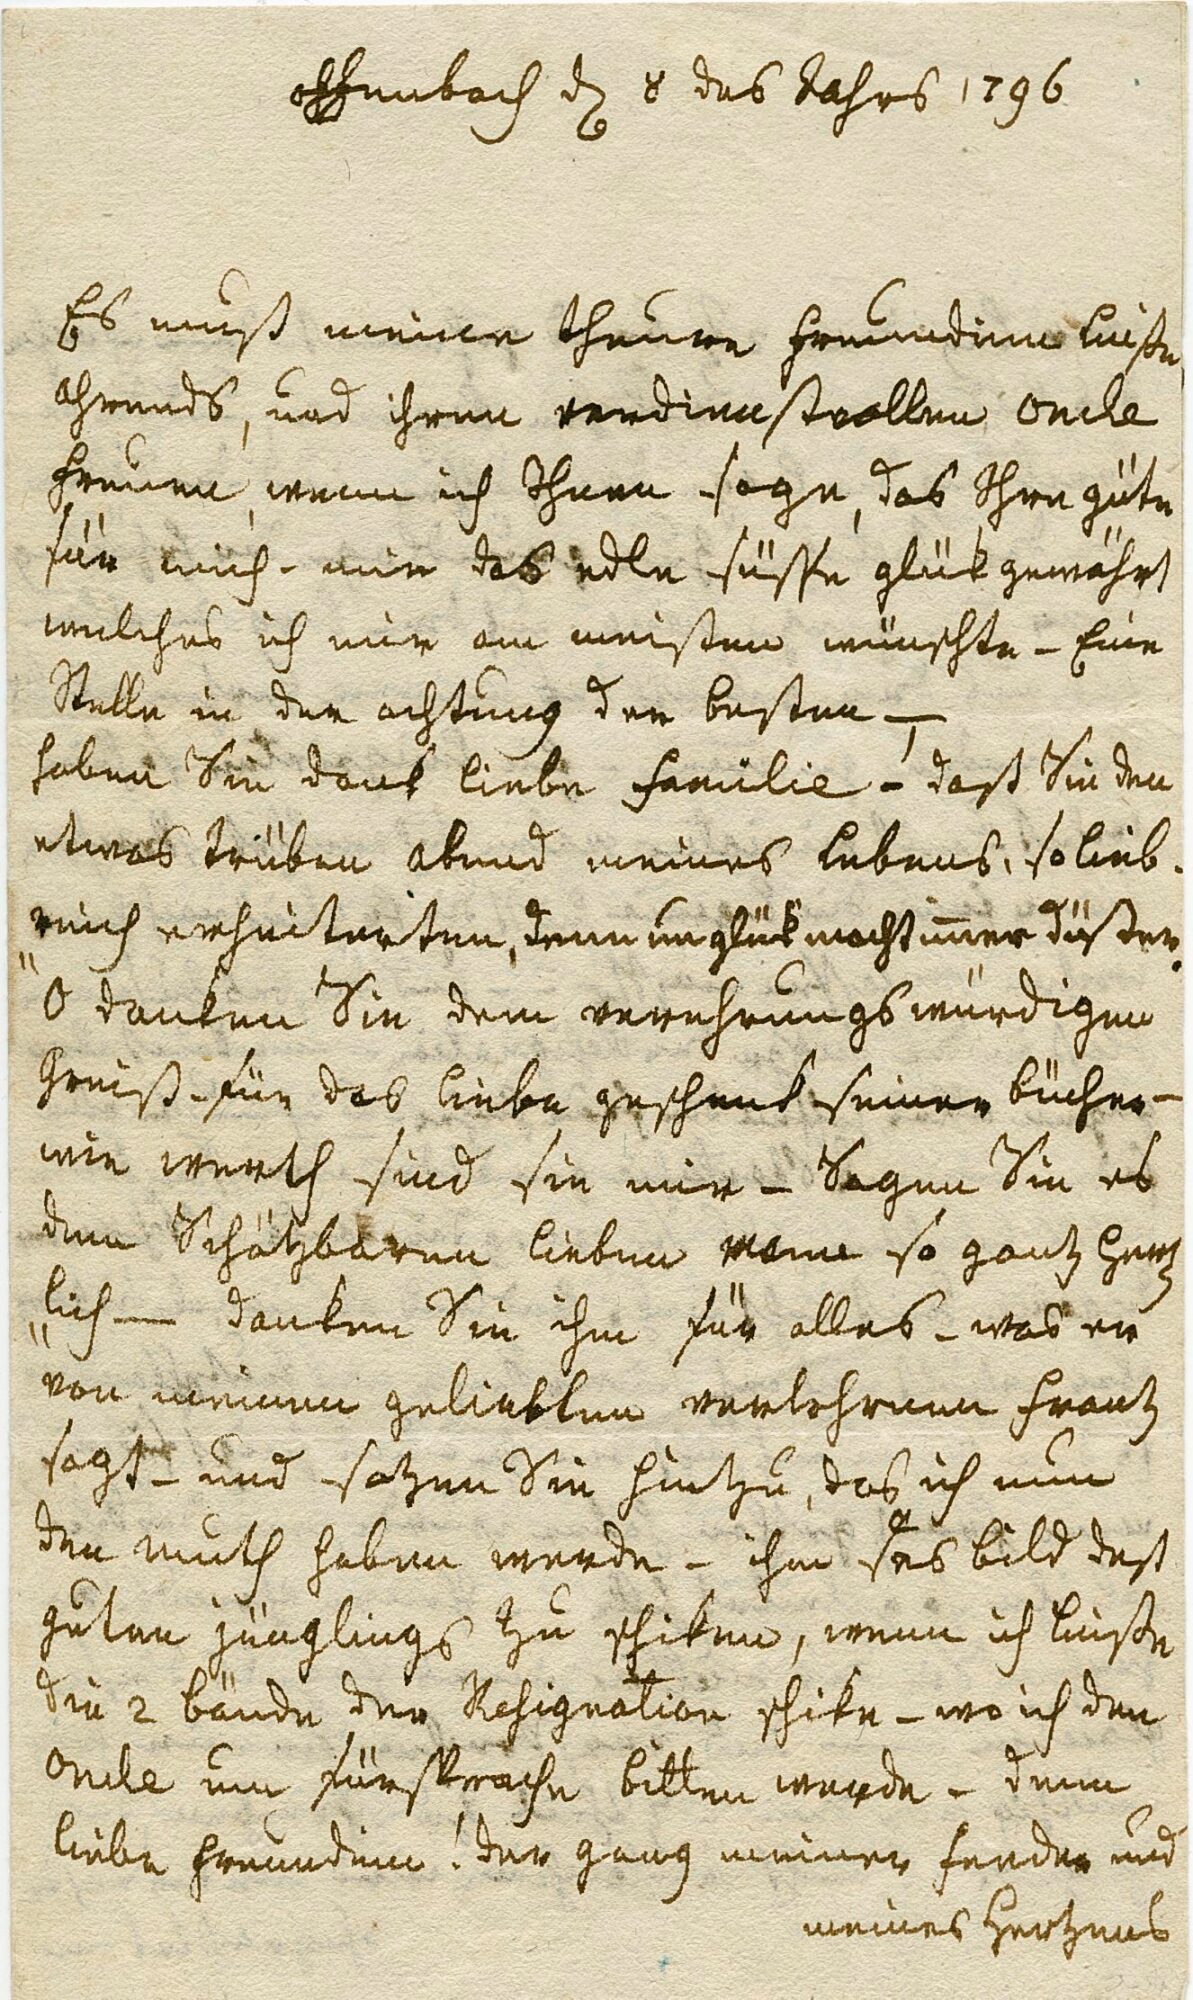 offenbach d 8 des Jahrs 1796
Es muß meine theure freundinn Luiße
ahrends, und ihren verdienstvollen oncle
freuen, wenn ich Ihnen sage, das Ihre güte
für mich - mir das edle süsse glük gewährt
welches ich mir am meisten wünschte - Eine
Stelle in der achtung der besten -
haben Sie dank liebe familie - daß Sie den
etwas trüben abend meines Lebens, so lieb-
„reich erheiterten, denn unglük macht imer düster.
O danken Sie dem verehrungswürdigen
Greiß - für das liebe geschenk seiner bücher -
wie werth sind sie mir - Sagen Sie es
dem Schätzbaren lieben mann so gantz Hertz
„lich - danken Sie ihm für alles - was er
von meinem geliebten verlohrnen Frantz
sagt - und setzen Sie hintzu, das ich nun
den muth haben werde - ihm das bild deß
guten jünglings zu schiken, wenn ich Luiße
die 2 bände der Resignation schike - wo ich den
oncle um fürsprache bitten werde - denn
liebe freundinn! der gang meiner feeder und
meines Hertzens